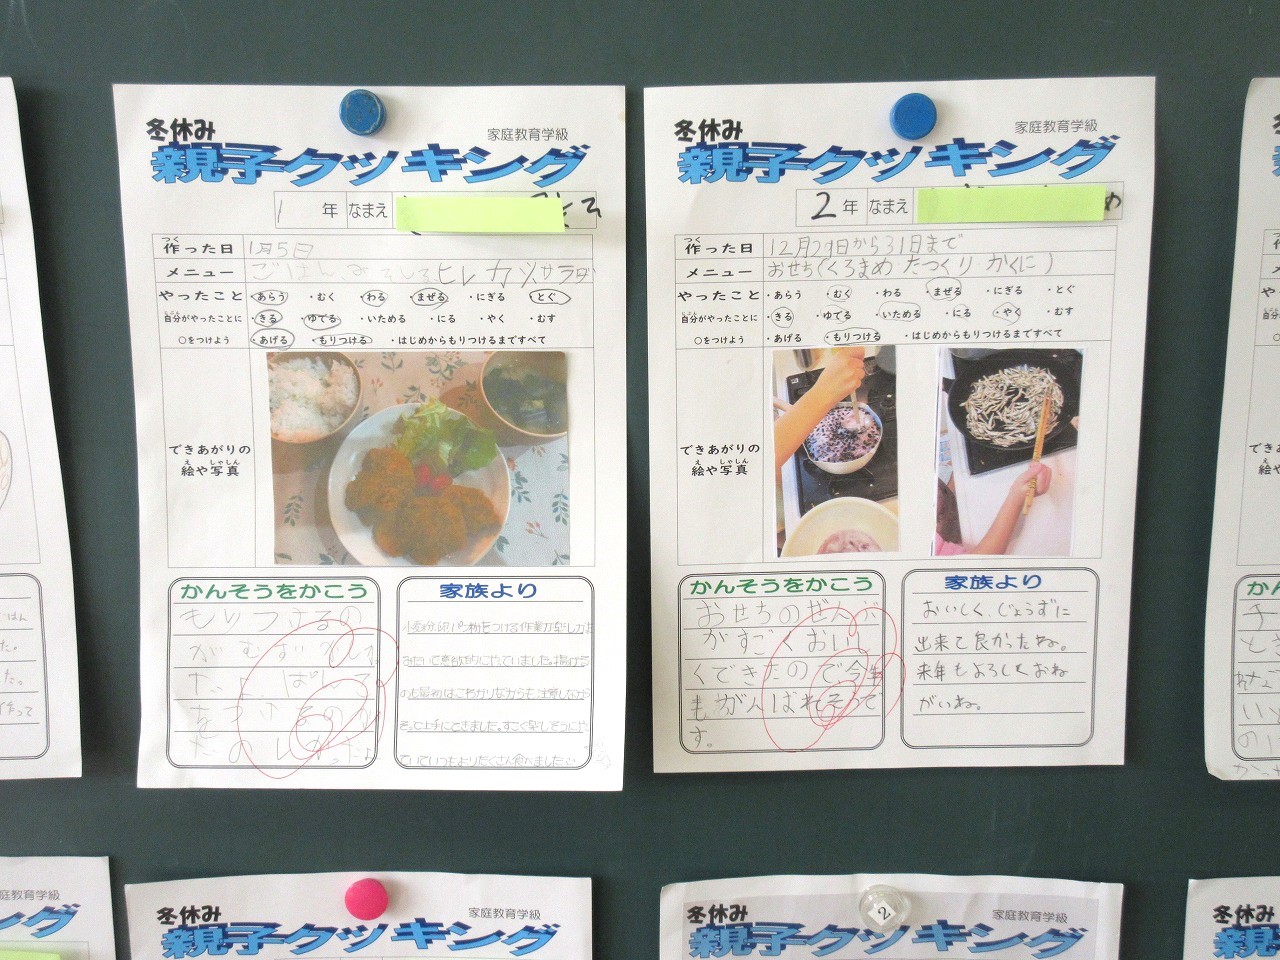 冬休み
家庭教育学級
親子クッキング
1年 なまえ
作った日 1月5日
メニュー ごはん、みそしる ヒレカツ サラダ
やったこと ・あらう ・むく ・わる ・まぜる ・にぎる ・とぐ
自分がやったことに ・きる ・ゆでる ・いためる ・にる ・やく ・むす
○をつけよう ・あげる ・もりつける ・はじめからもりつけるまですべて
できあがりの
絵や写真
かんそうをかこう
もりつけるの
がむずかしかっ
た
家族より
小麦粉、卵、パン粉をつける作業が楽しかった
みたいで意欲的にやっていました。揚げる
のも最初はこわがりながらも、注意しながら
そっと上手にできました。すごく楽しそうにや
っていていつもよりたくさん食べました
冬休み
家庭教育学級
親子クッキング
2年 なまえ め
作った日 12月29日から31日まで
メニュー おせち(くろまめ たつくり かくに)
やったこと ・あらう ・むく ・わる ・まぜる ・にぎる ・とぐ
自分がやったことに ・きる ・ゆでる ・いためる ・にる ・やく ・むす
○をつけよう ・あげる ・もりつける ・はじめからもりつけるまですべて
できあがりの
絵や写真
かんそうをかこう
おせちのぜんぶ
がすごくおいし
くできたので、今年
もがんばれそうで
す。
家族より
おいしく、じょうずに
出来て良かったね。
来年もよろしくおね
がいね。
家庭教育学級
冬休み
家庭教育学級
親子クッキング
2
冬休み
家庭教育学級
親子クッキング
冬休み